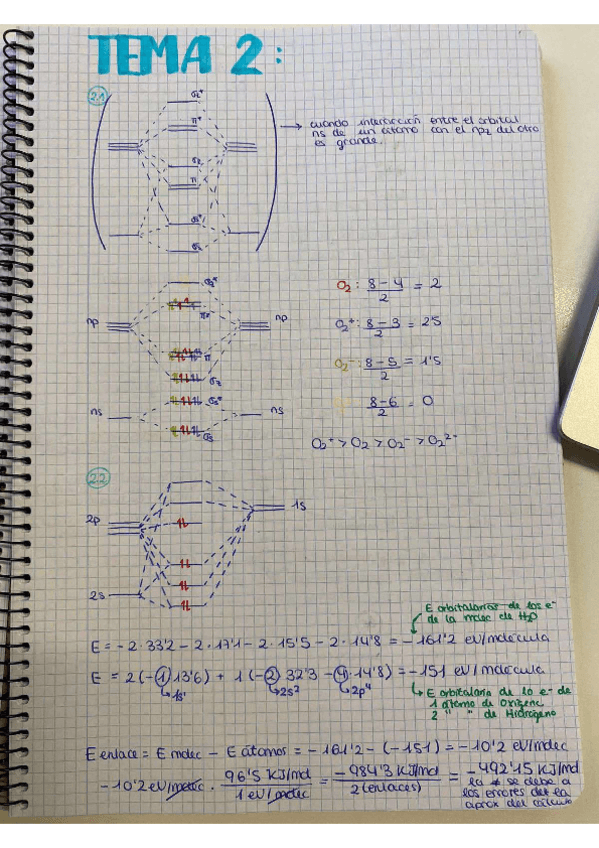 TEMA 2:
2.1
σz*
π*
σz
π
σs*
σs
cuando interacción entre el orbital
ns de un átomo con el npz del otro
es grande.
σz*
np
π*
np
π
σz
ns
σs*
ns
σs
O₂: 8-4/2 = 2
O₂⁺: 8-3/2 = 2'5
O₂⁻: 8-5/2 = 1'5
8-6/2 = 0
O₂⁺ > O₂ > O₂⁻ > O₂²⁻
2.2
2p
1s
2s
E orbitalarias de los e⁻
de la molec de H₂O
E = -2·33'2 - 2·17'1 - 2·15'5 - 2·14'8 = -161'2 eV/molécula
E = 2(-1)13'6) + 1(-2)32'3 -4)·14'8) = -151 eV/molécula
1s¹
2s²
2p⁴
E orbitalaria de lo e⁻ de
1 átomo de Oxígeno
2 " " de Hidrógeno
E enlace = E molec - E átomos = -161'2 - (-151) = -10'2 eV/molec
-10'2 eV/molec · 96'5 KJ/mol / 1 eV/molec = -984'3 KJ/mol / 2 (enlaces) = -492'15 KJ/mol
la ≠ se debe a
los errores de la
aprox del cálculo